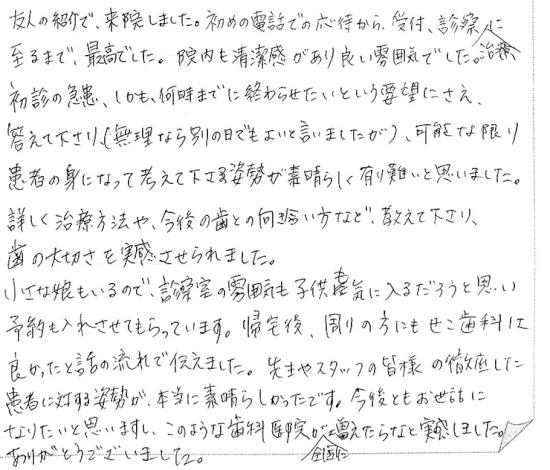 友人の紹介で、来院しました。初めの電話での応待から、受付、診察、治療に
至るまで、最高でした。院内も清潔感があり良い雰囲気でした。
初診の急患、しかも、何時までに終わらせたいという要望にさえ、
答えて下さり、(無理なら別の日でもよいと言いましたが)、可能な限り
患者の身になって考えて下さる姿勢が素晴らしく有り難いと思いました。
詳しく治療方法や、今後の歯との向き合い方など、教えて下さり、
歯の大切さを実感させられました。
小さな娘もいるので、診察室の雰囲気も子供喜気に入るだろうと思い
予約も入れさせてもらっています。帰宅後、周りの方にもせこ歯科は
良かったと話の流れで伝えました。先生やスタッフの皆様の徹底した
患者に対する姿勢が、本当に素晴らしかったです。今後ともお世話に
なりたいと思いますし、このような歯科医院が全国に増えたらなと実感しました。
ありがとうございました。